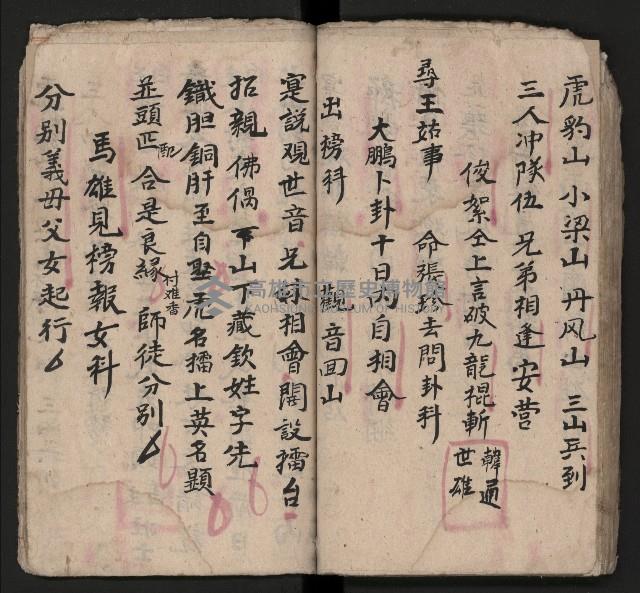 虎豹山 小梁山 丹风山 三山兵到
三人冲隊伍 兄弟相逢安营
俊絮仝上言破九龍棍斬
韓通
世雄
尋王站事 命張玲去問卦科
大鵬卜卦十日內自相會
出榜科 觀音回山
寔説观世音兄妹相會開設擂台
招親佛偶下山下藏欽姓字先
鐵胆銅肝至自堅虎名擂上英名顕
並頭匹配合是良緣 付难香 師徒分别
馬雄見榜報女科
分别義毋父女起行
高雄市立歷史博物館
KAOHSIUNG MUSEUM OF HISTORY